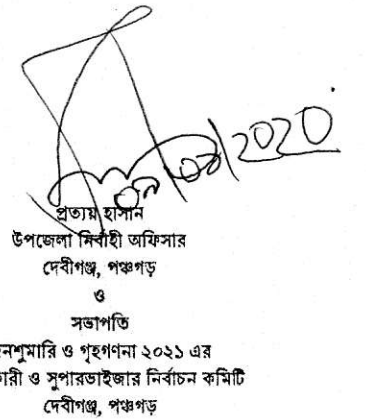 প্রত্যয় হাসান
উপজেলা নির্বাহী অফিসার
দেবীগঞ্জ, পঞ্চগড়
ও
সভাপতি
নশুমারি ও গৃহগণনা ২০২১ এর
কারী ও সুপারভাইজার নির্বাচন কমিটি
দেবীগঞ্জ, পঞ্চগড়